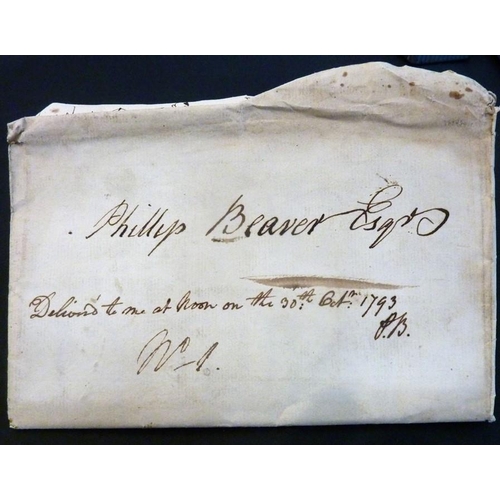 Phillip Beaver Esqr
Deliver'd to me at Noon on the 30th. Octr. 1793
P.B.
No 1.